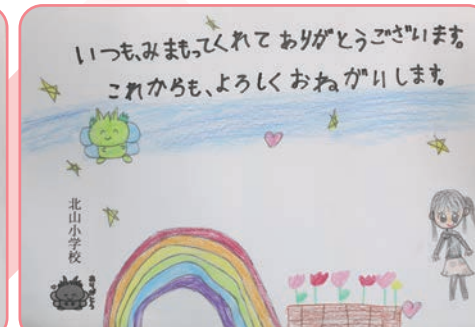 いつも、みまもってくれて ありがとうございます。
これからも、よろしくおねがいします。
北山小学校
ありがとう